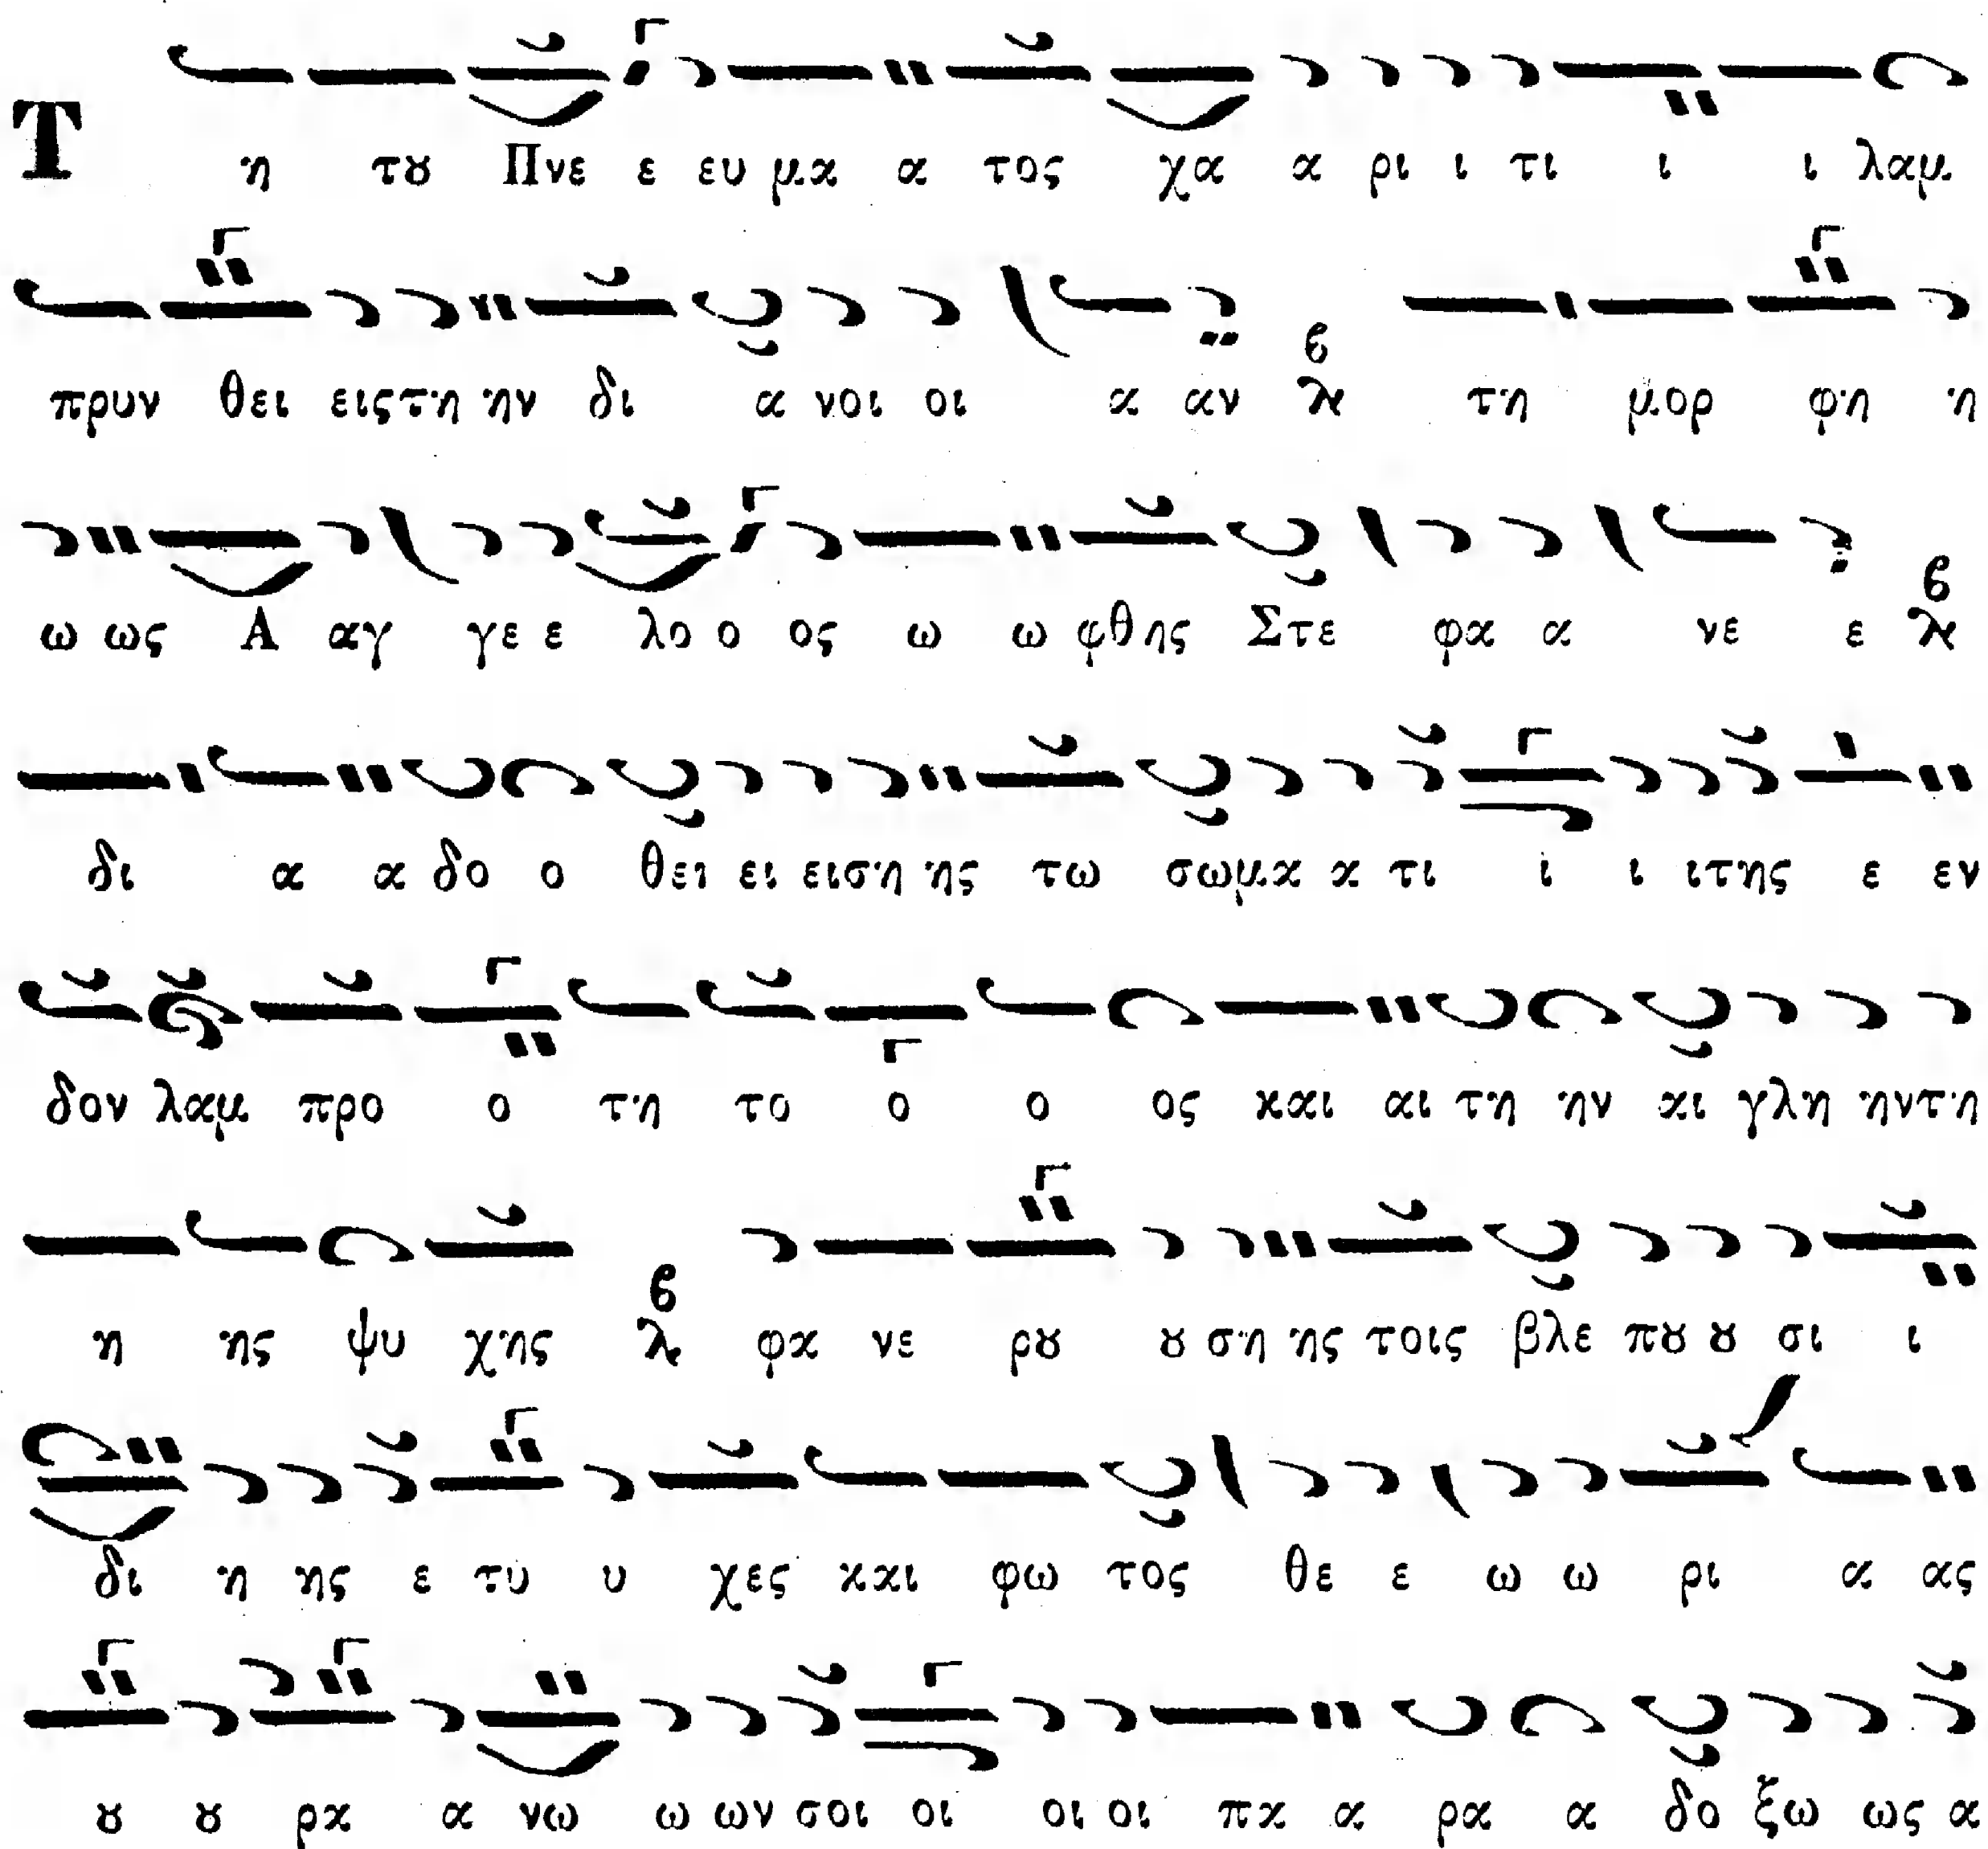 Τ η τȣ Πνε ε ευ μα α τος χα α ρι ι τι ι ι λαμ
πρυν θει εις τη ην δι α νοι οι α αν τη μορ φη η
ω ως Α αγ γε ε λο ο ος ω ω φθης Στε φα α νε ε
δι α α δο ο θει ει ειση ης τω σωμα α τι ι ι ιτης ε εν
δον λαμ προ ο τη το ο ο ος και αι τη ην αι γλη ηντη
η ης ψυ χης φα νε ρȣ ȣ ση ης τοις βλε πȣ ȣ σι ι
δι η ης ε τυ υ χες και φω τος θε ε ω ω ρι α ας
ȣ ȣ ρα α νω ω ων σοι οι οι οι πα α ρα α δο ξω ως α